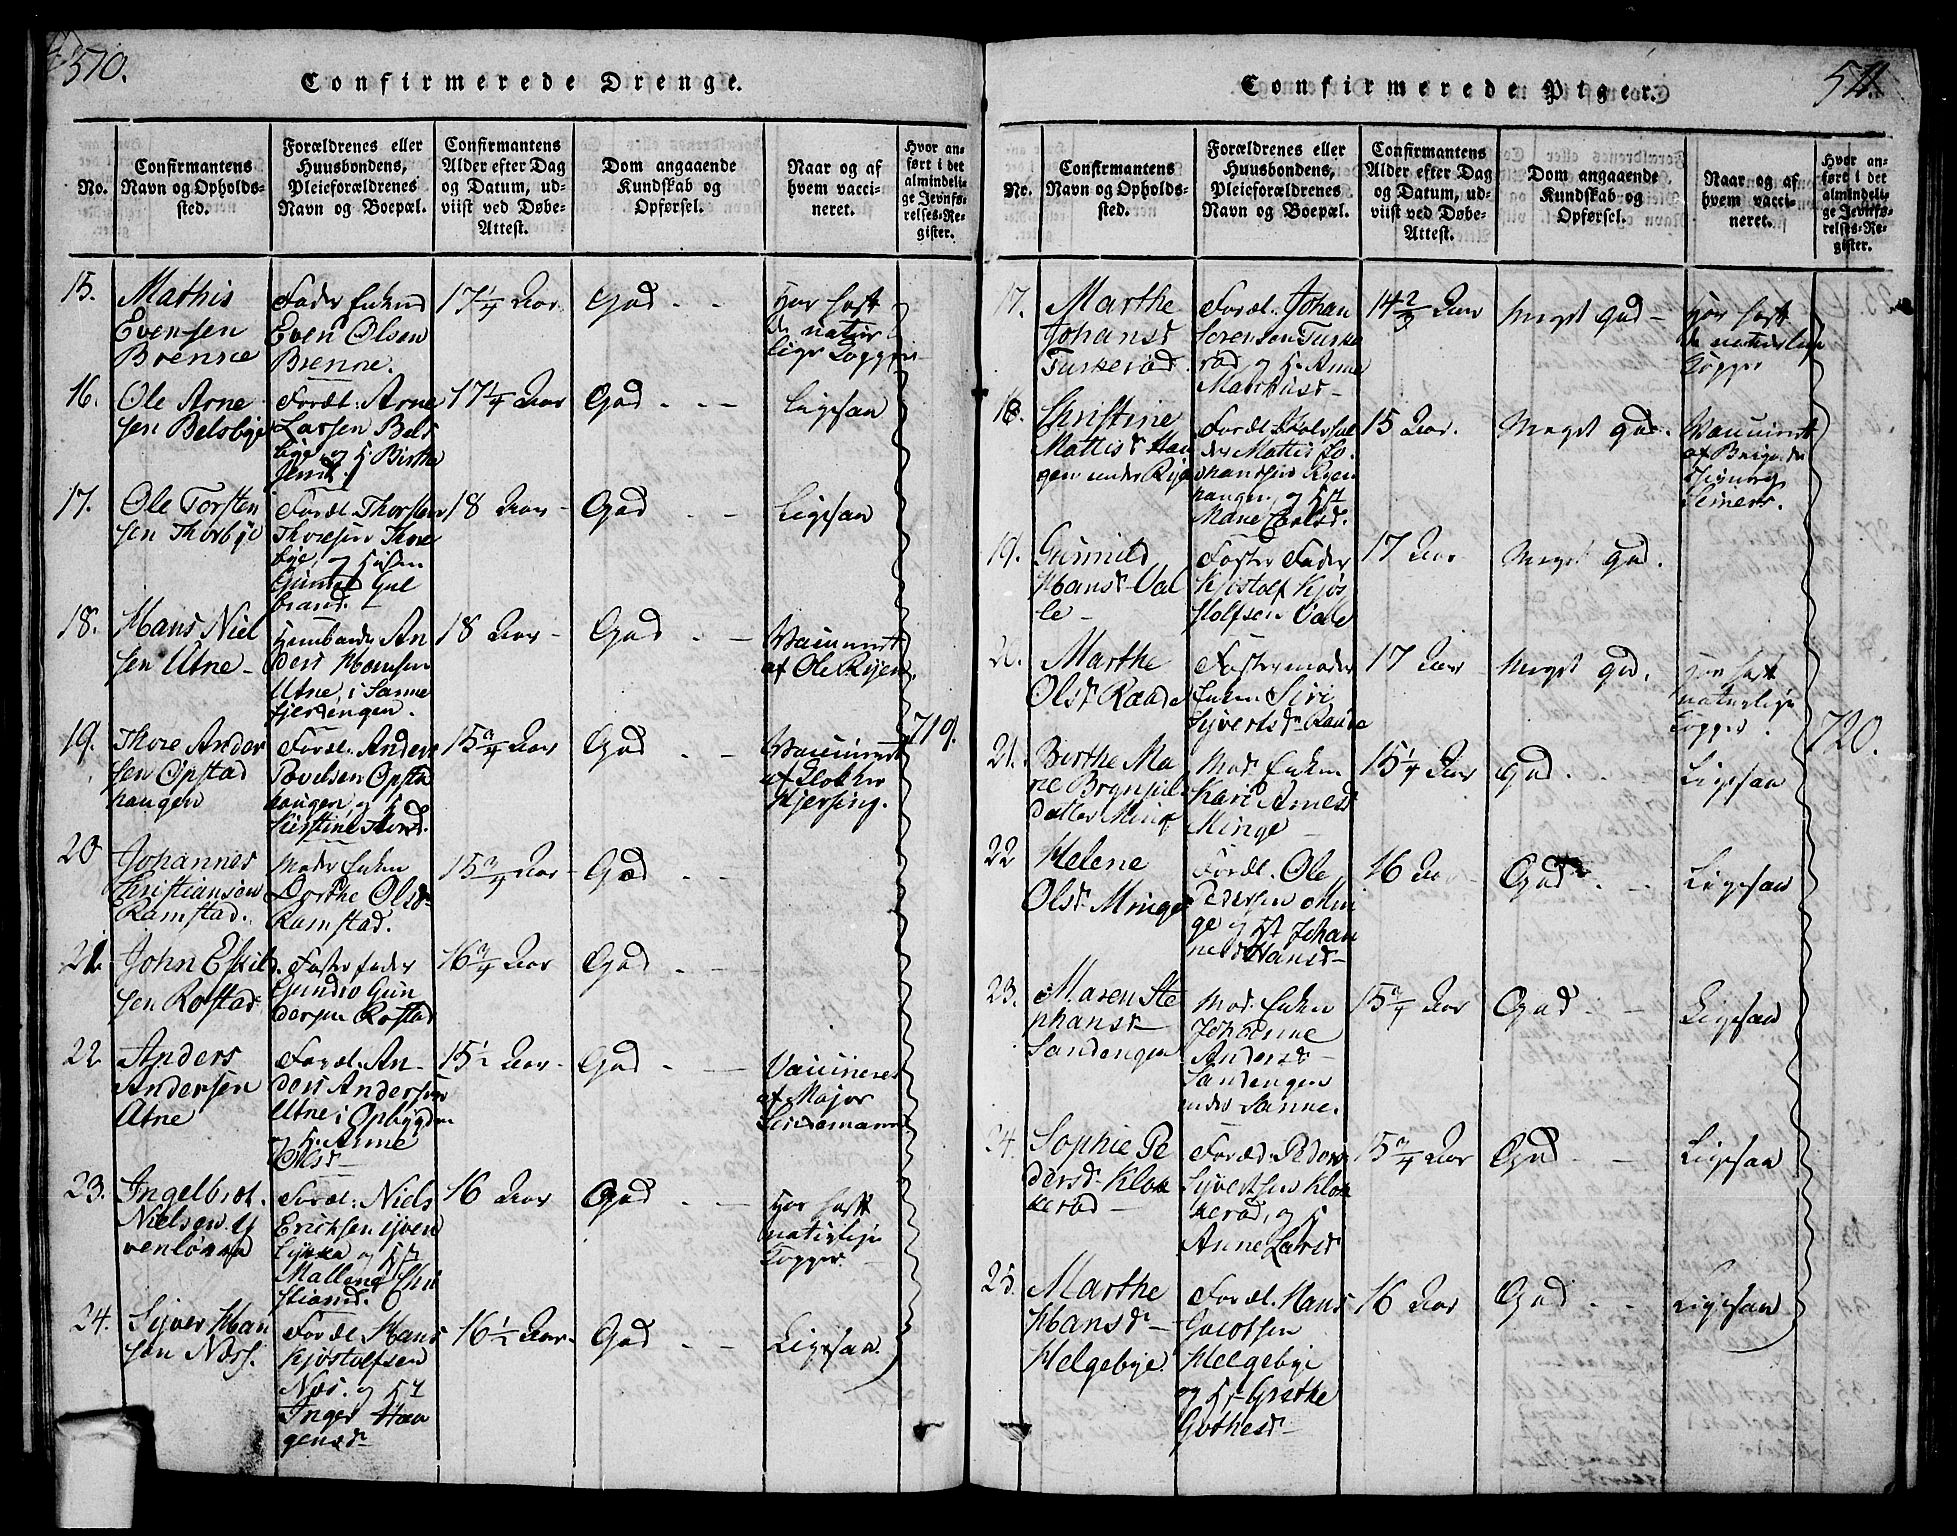 570.
Confirmerede Drenge.
No.
Confirmantens
Navn og Opholds-
sted.
Forældrenes eller
Huusbondens,
Pleieforældrenes
Navn og Boepæl.
Confirmantens
Alder efter Dag
og Datum, ud-
viist ved Døbe-
Attest.
Dom angaaende
Kundskab og
Opførsel.
Naar og af
hvem vacci-
neret.
Hvor an-
ført i det
almindeli-
ge Jevnfø-
relses-Re-
gister.
15.
Mathis
Evensen
Brenne
Fader Enkem
Even Olsen
Brenne.
17 1/4 Aar
God - -
Har haft
de natur
lige Kopper
16.
Ole Arne
sen Belsbye
Foræl. Arne
Larsen Bels
bye, og H. Birthe
17 1/4 Aar
God - -
Ligesaa
17.
Ole Torsten
sen Thorbye
Foræl. Thorsten
Thoresen Thor
bye, og
Gunild Gul
brand.
18 Aar -
God - -
Ligesaa
18.
Hans Niel
sen Utne -
Huusbonde An
ders Hansen
Utne, i Sanne
fjerdingen.
18 Aar -
God - -
Vaccineret
af Ole Ryen.
19.
Thore Ander
sen Opstad
haugen
Foræl. Anders
Povelsen Opsta
haugen, og H.
Kirstine
15 3/4 Aar
God - -
Vaccineret
af Klokker
Hjersing.
719.
20
Johannes
Christiansen
Ramstad.
Moder Enken
Dorthe Olsd.
Ramstad.
15 3/4 Aar -
God - -
21
John Eskild
sen Rostad
Foster fader
Gunder Gun
dersen Rostad
16 3/4 Aar
God - -
22
Anders
Andersen
Utne
Foræl. An-
ders Andersen
Utne i Opbygden
og H. Anne
Olsd -
15 1/2 Aar -
God - -
Vaccineret
af Major
Leidemann
23.
Ingelbret
Nielsen y
venløkka
Foræl. Niels
Ericksen yven
løkka og Hst
Malleng Chri
stiansd.
16 Aar
God - -
Har haft
naturlige
Kopper -
24.
Syver Han
sen Næss.
Foræl. Hans
Kjøstolfsen
Næs. og Hst
Inger Haa
gensd -
16 1/2 Aar -
God - -
Ligesaa
571.
Confirmerede Piger.
No.
Confirmantens
Navn og Opholds-
sted.
Forældrenes eller
Huusbondens,
Pleieforældrenes
Navn og Boepæl.
Confirmantens
Alder efter Dag
og Datum, ud-
viist ved Døbe-
Attest.
Dom angaaende
Kundskab og
Opførsel.
Naar og af
hvem vacci-
neret.
Hvor an-
ført i det
almindeli-
ge Jevnfø-
relses-Re-
gister.
17.
Marthe
Johansd
Tuskerød
Foræl. Johan
Sørensen Tuske
rød og H. Anne
Marthisd -
14 2/3 Aar
Meget god -
Har haft
de naturlige
Kopper
18.
Christine
Mattisd Hau
gen under Rye
Foræl
Mattis Jo
hansen Ryen
haugen, og Hst
Marie Carlsd.
15 Aar.
Meget god.
Vaccineret
af
19.
Gunnild
Hansd Val
le -
Foster Fader
Kjøstolf Kjøs
tolfsen Vale
17 Aar
Meget god.
20.
Marthe
Olsd Raade
Fostermoder
Enken Siri
Syvertsd Raade
17 Aar
Meget god.
Har haft
naturlige
Kopper.
720.
21.
Birthe Ma
rie Brynjuls
datter Minge
Mod. Enken
Kari Arnesd
Minge -
15 1/4 Aar
God. -
Ligesaa
22
Helene
Olsd Minge
Foræl. Ole
Pedersen Min
ge og Hst Johan
ne Hansd -
16 Aar -
God. -
Ligesaa
23.
Maren Ste
phansd -
Sandengen
Mod. Enken
Johanne
Andersd -
Sandengen
under Sanne.
15 3/4 Aar
God -
Ligesaa
24.
Sophie Pe
dersd Klok
kerød -
Foræl. Peder
Syvertsen Klok
kerød, og H
Anne Larsd
15 3/4 Aar
God - -
Ligesaa
25.
Marthe
Hansd -
Helgebye
Foræl. Hans
Jacobsen
Helgebye
og Hst Grethe
Guthesd -
16 Aar
God - -
Ligesaa